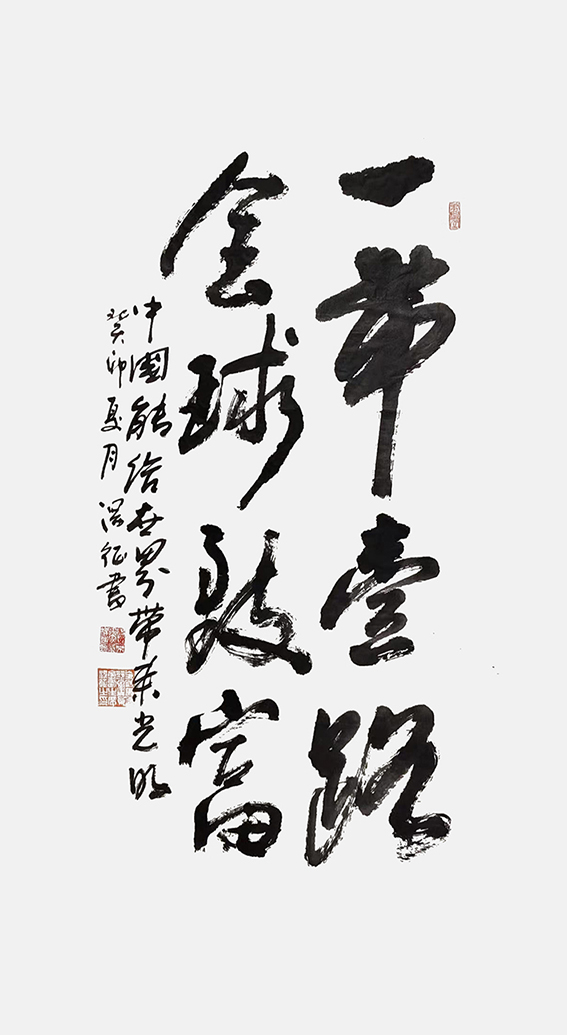 一带壹路
全球致富
中国能给世界带来光明
癸卯夏月 征書